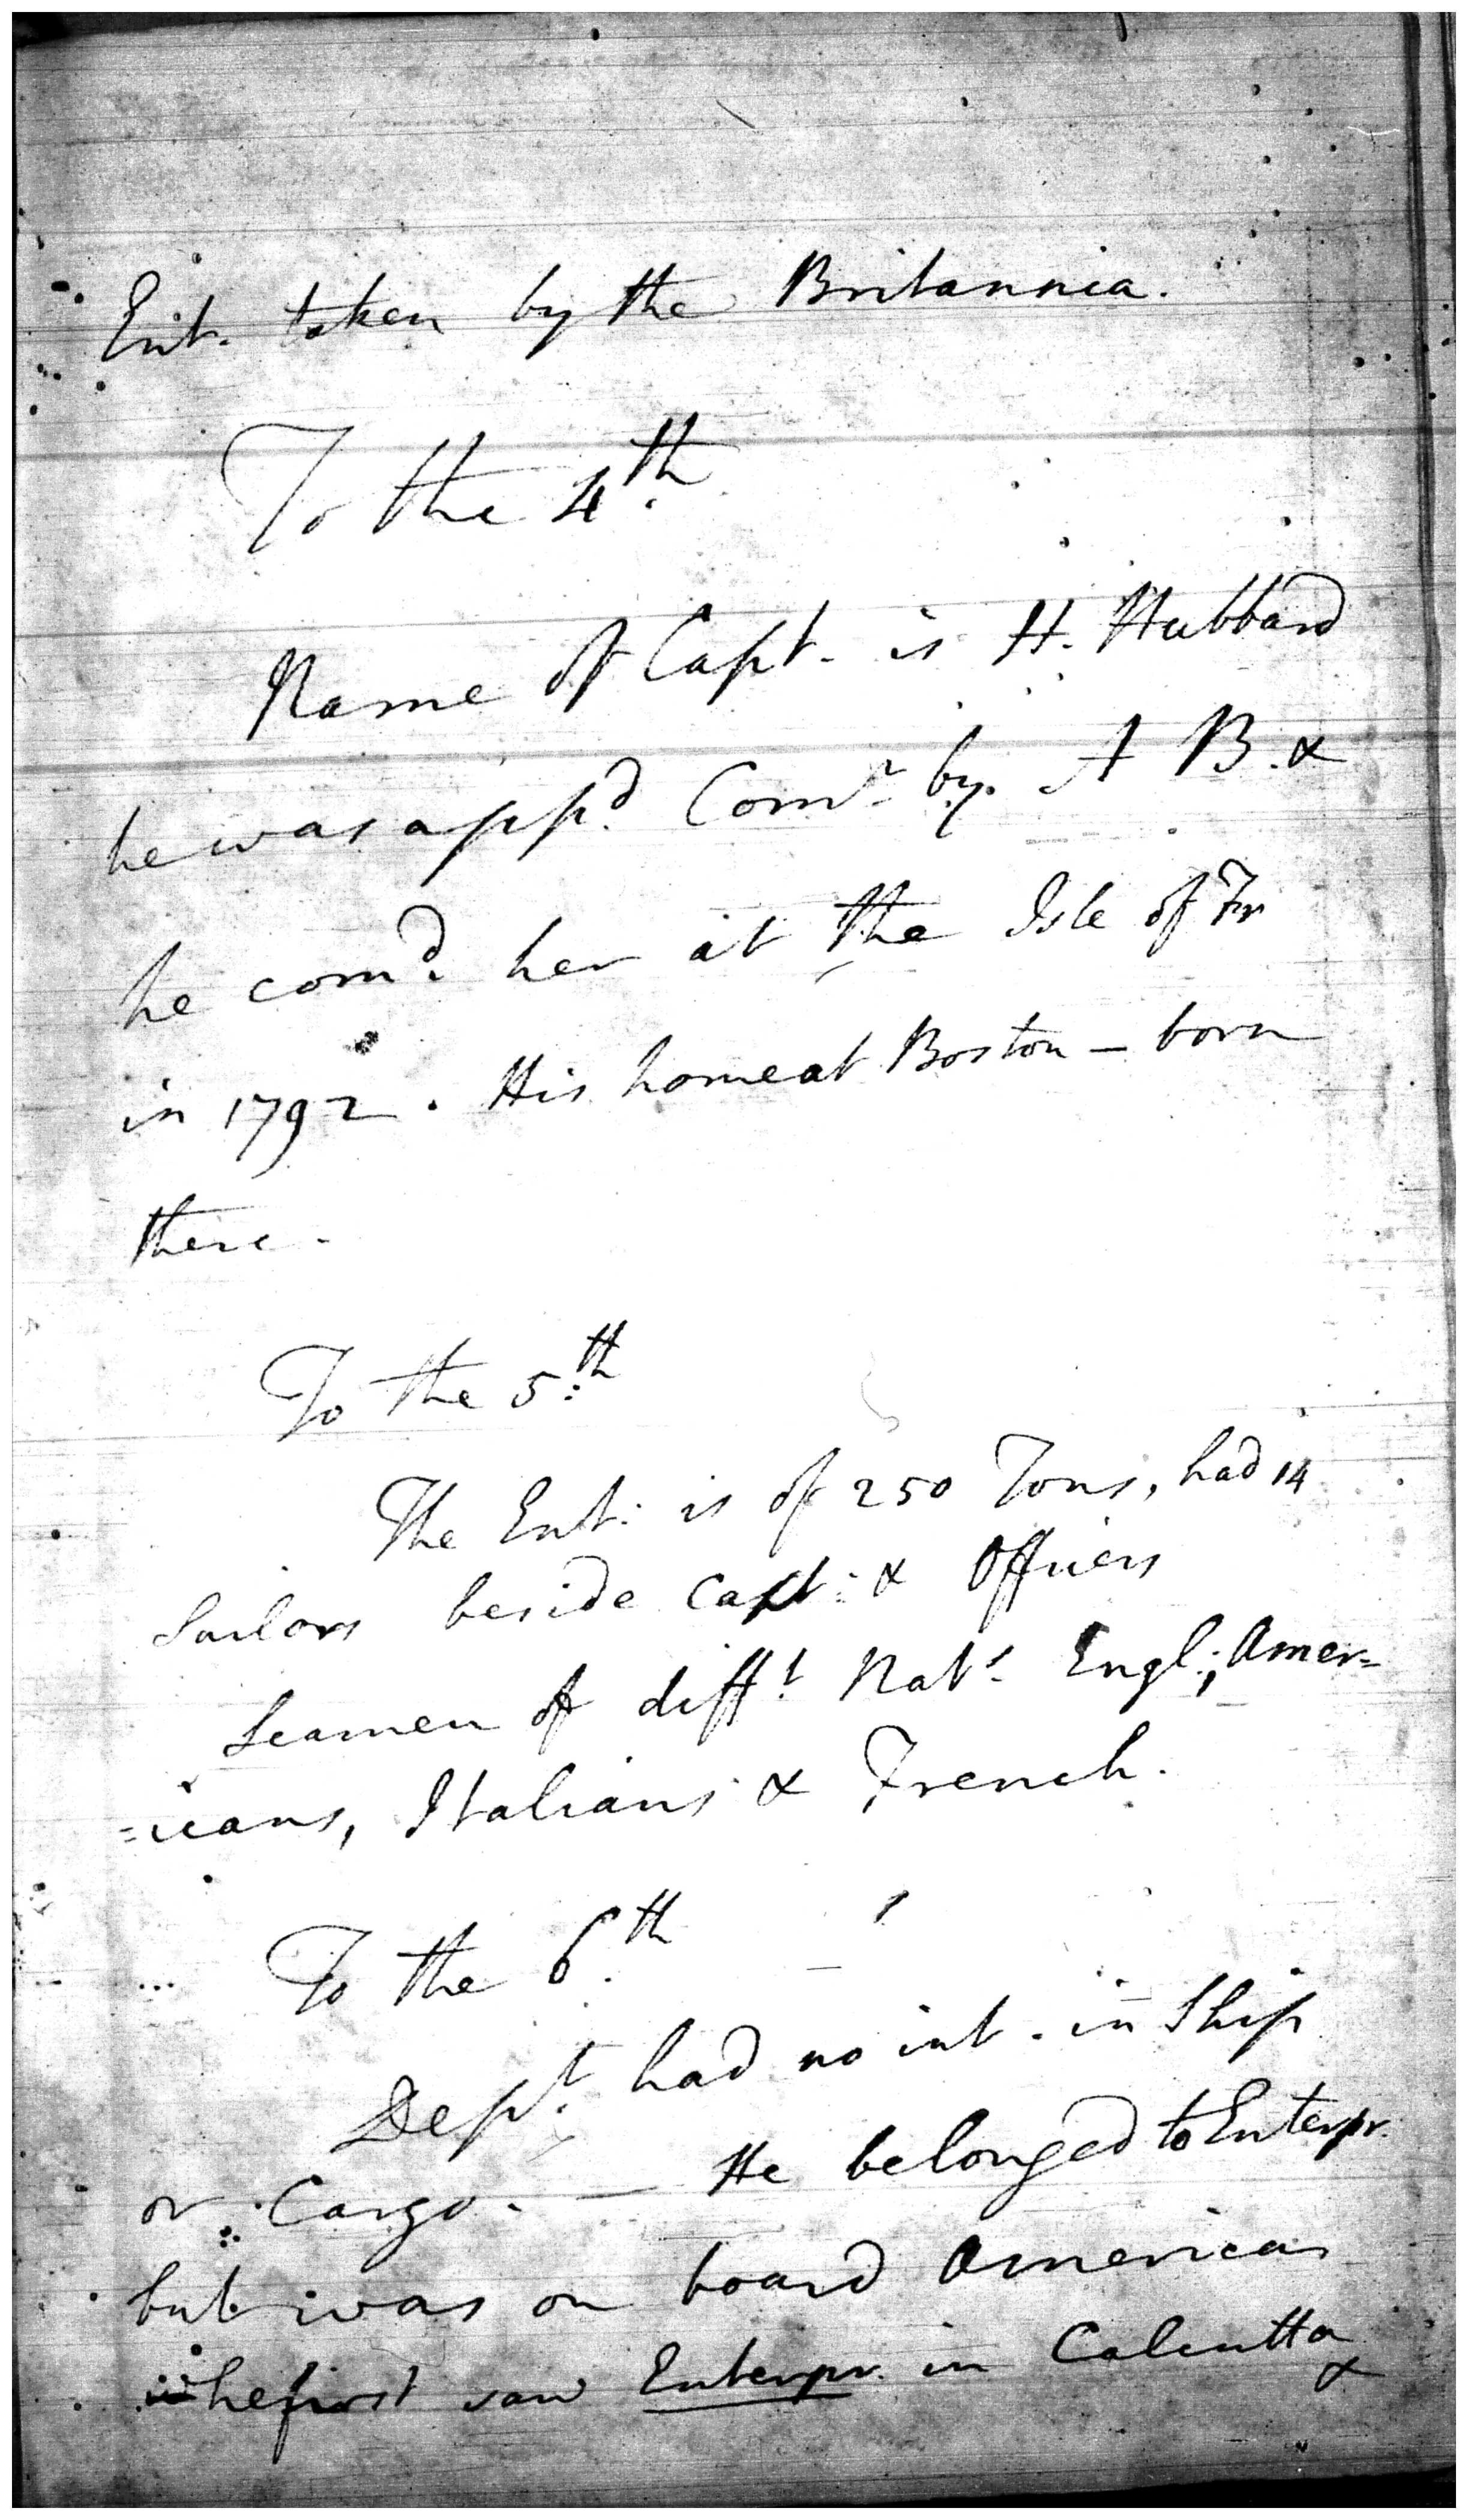 Ent. taken by the Britannia.
To the 4th
Name of Capt. is H. Hubbard
he was appd. Comr. by A B. &
he comd. her at the Isle of Fr
in 1792. His home at Boston - born
there.
To the 5th
The Ent: is of 250 Tons, had 14
Sailors beside Capt: & Officers
Seamen of difft. Nats. Engl:, Amer=
=icans, Italians & French.
To the 6th
Dept. had no int. in Ship
or Cargo. — He belonged to Enterpr.
but was on board American
he first saw Enterpr. in Calcutta
&